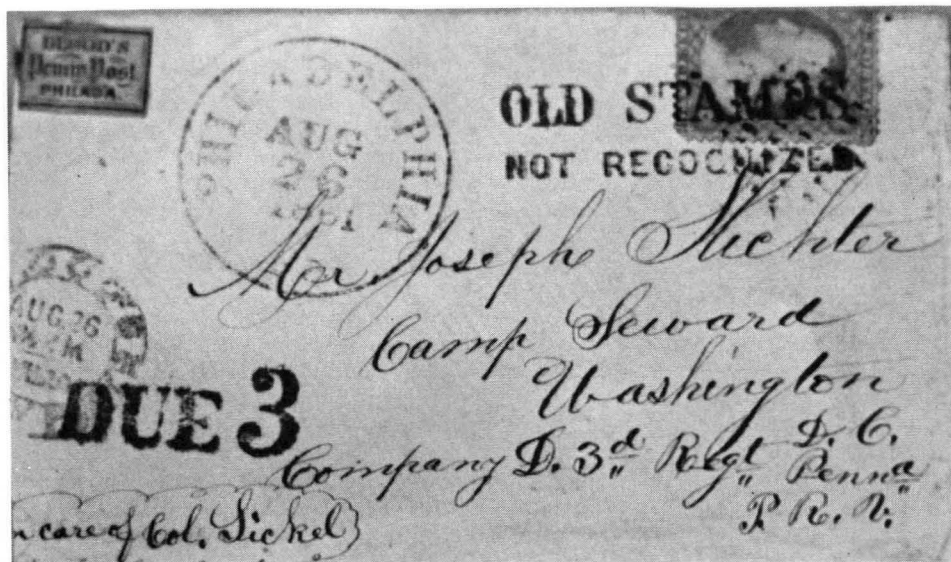 BLOOD'S
Penny Post
PHILADA.
PHILADELPHIA
AUG
26
1861
OLD STAMPS
NOT RECOGNIZED
Mr Joseph Stichter
Camp Seward
Washington
D. C.
Company D. 3d Regt Penna
P. R. V.
AUG 26
DUE 3
n care of Col. Sickel